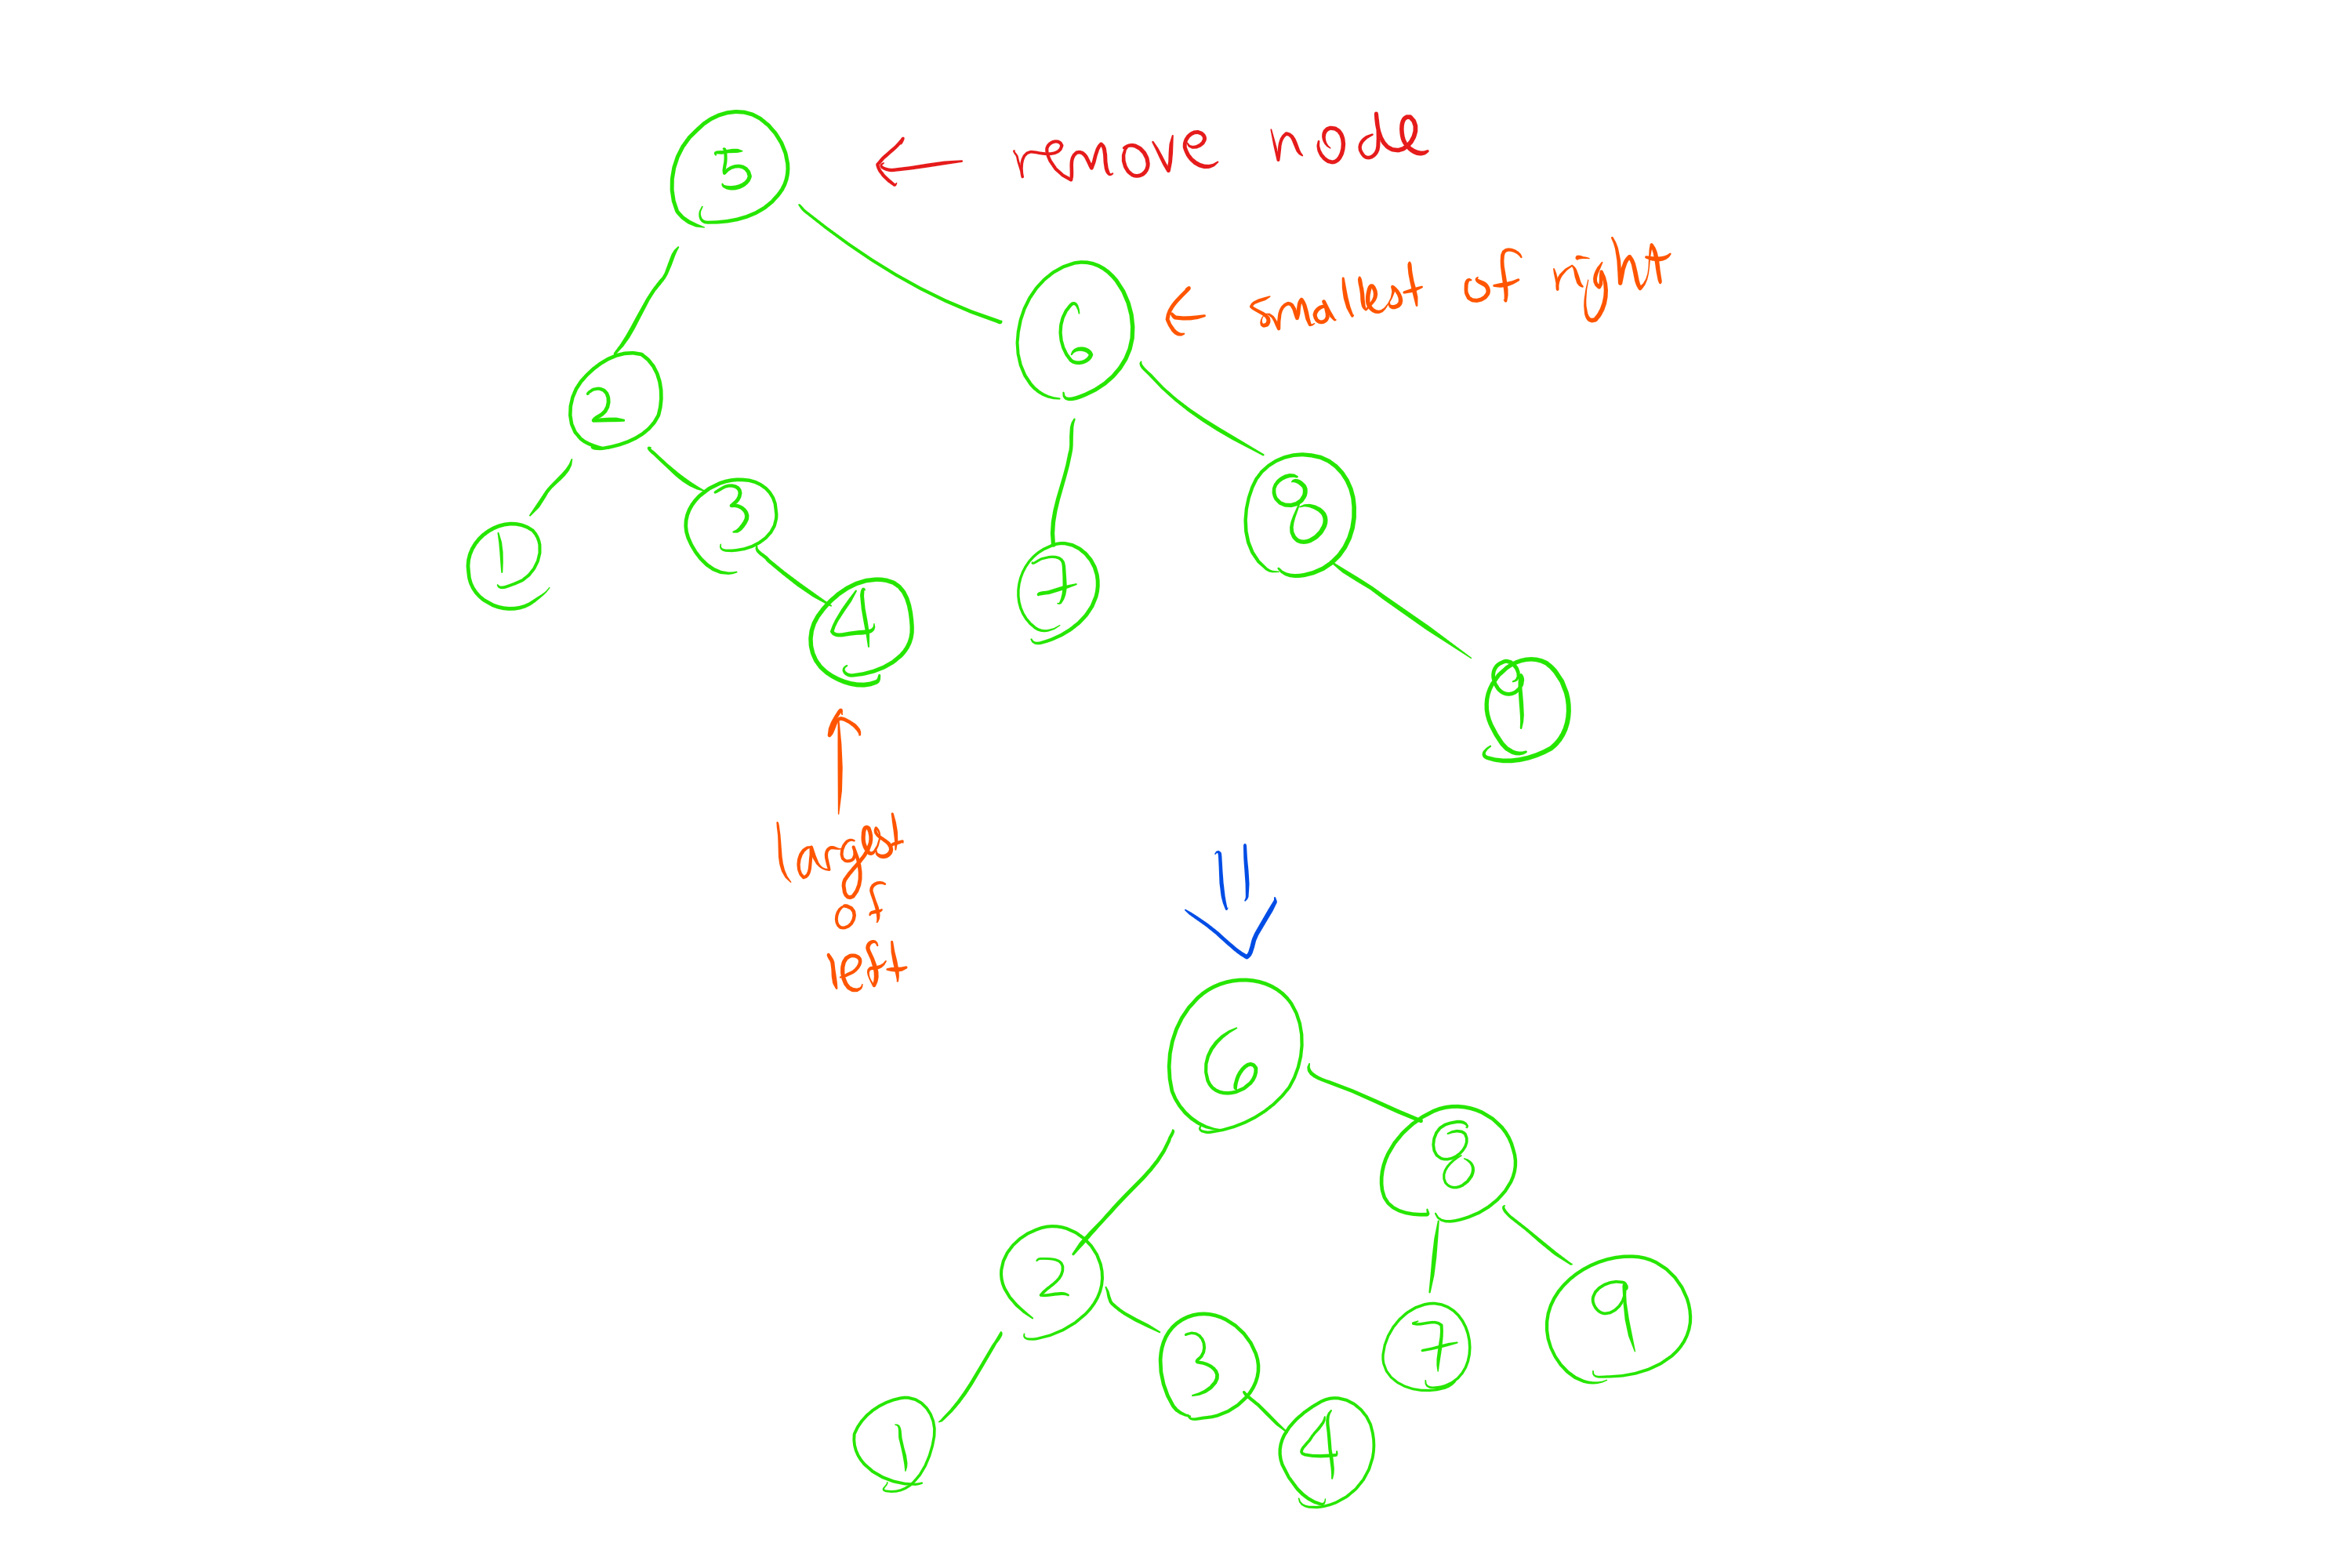 5
← remove node
6
← smallest of right
2
8
3
1
7
4
9
largest
of
left
6
8
2
9
7
3
1
4